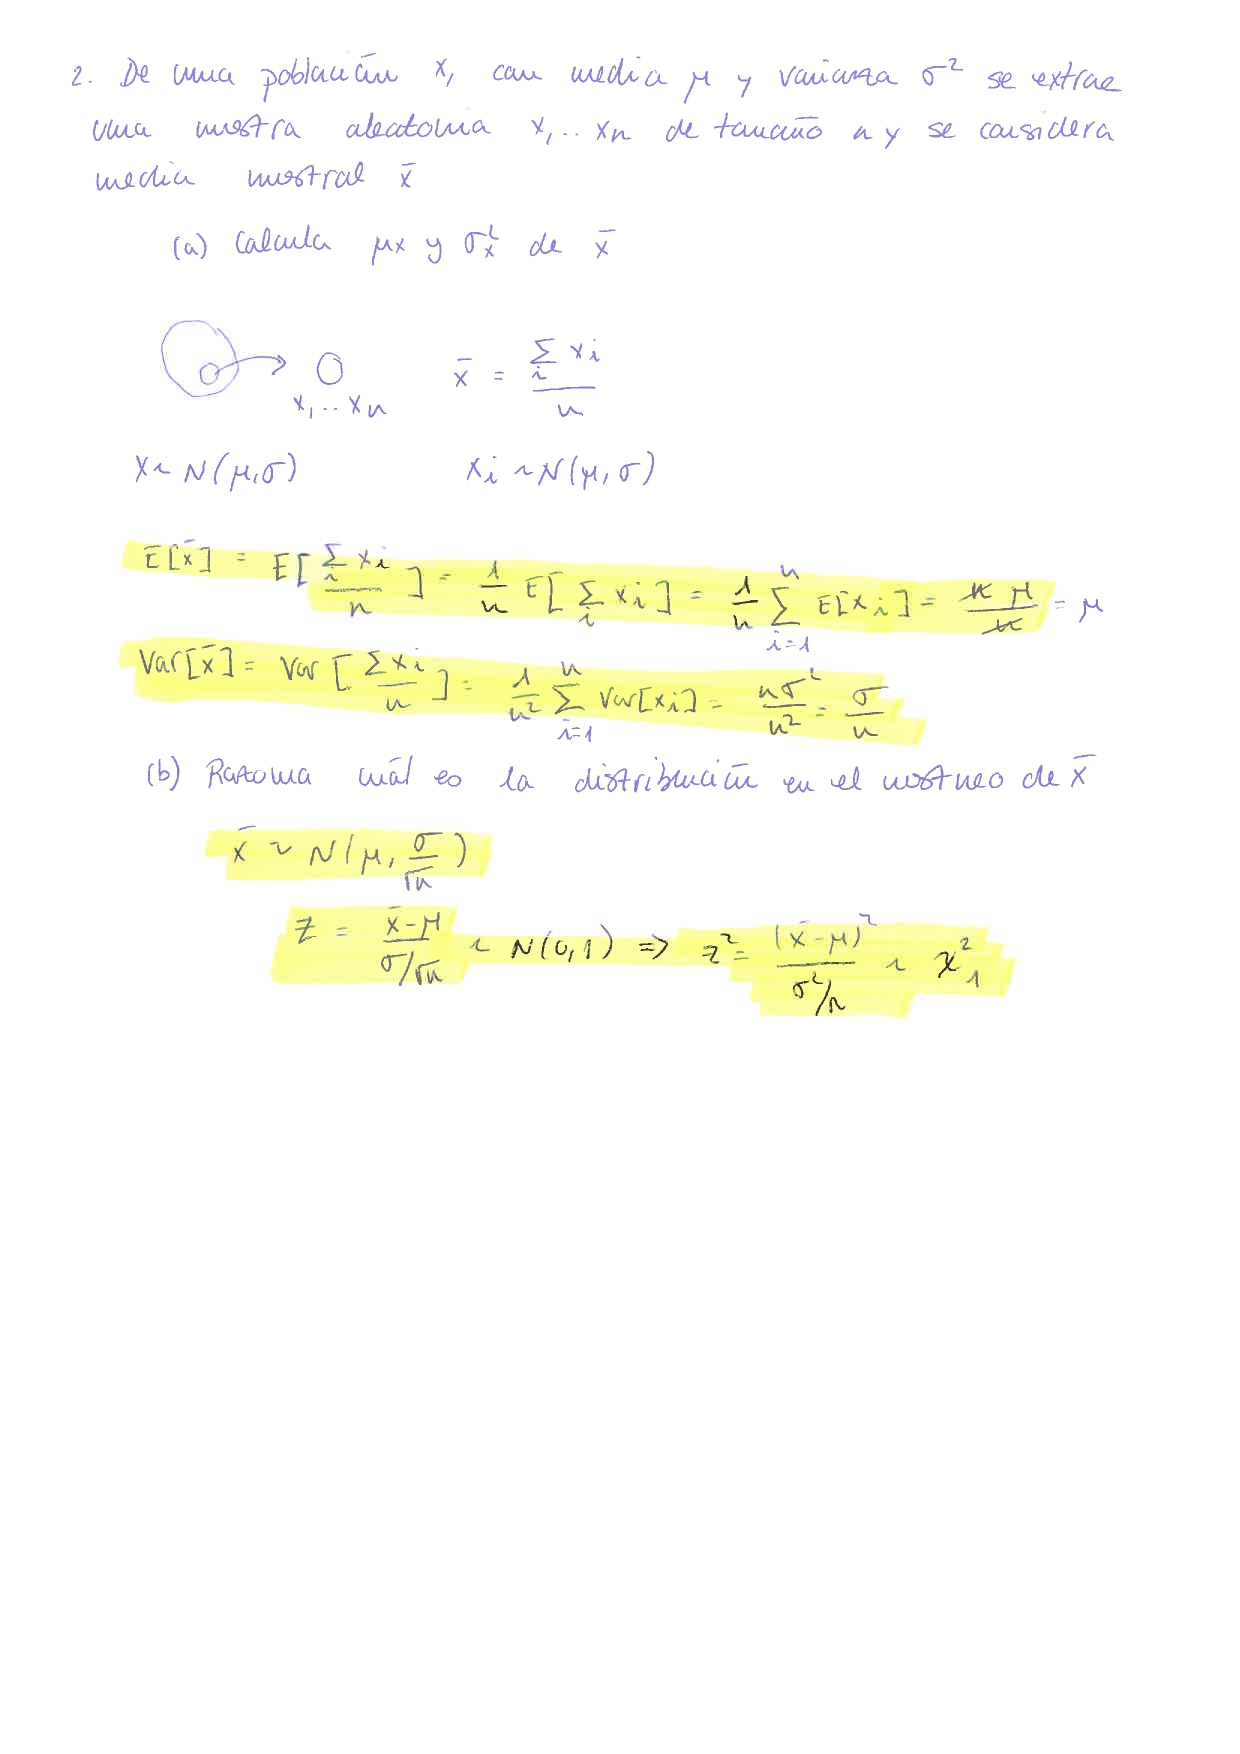 2. De una población x, con media μ y varianza σ² se extrae
una muestra aleatoria x₁.. xn de tamaño n y se considera
media muestral x̄
(a) Calcula μx y σ²x de x̄
x̄ = Σᵢ xi / n
x₁.. xn
x ~ N(μ,σ) xi ~ N(μ,σ)
E[x̄] = E[Σᵢ xi / n] = 1/n E[Σᵢ xi] = 1/n Σⁿᵢ₌₁ E[xi] = n μ / n = μ
Var[x̄] = Var[Σxi / n] = 1/n² Σⁿᵢ₌₁ Var[xi] = nσ²/n² = σ/n
(b) Razona cuál es la distribución en el mostreo de x̄
x̄ ~ N(μ, σ/√n)
Z = x̄-μ / σ/√n ~ N(0,1) => z² = (x̄-μ)² / σ²/n ~ χ²₁